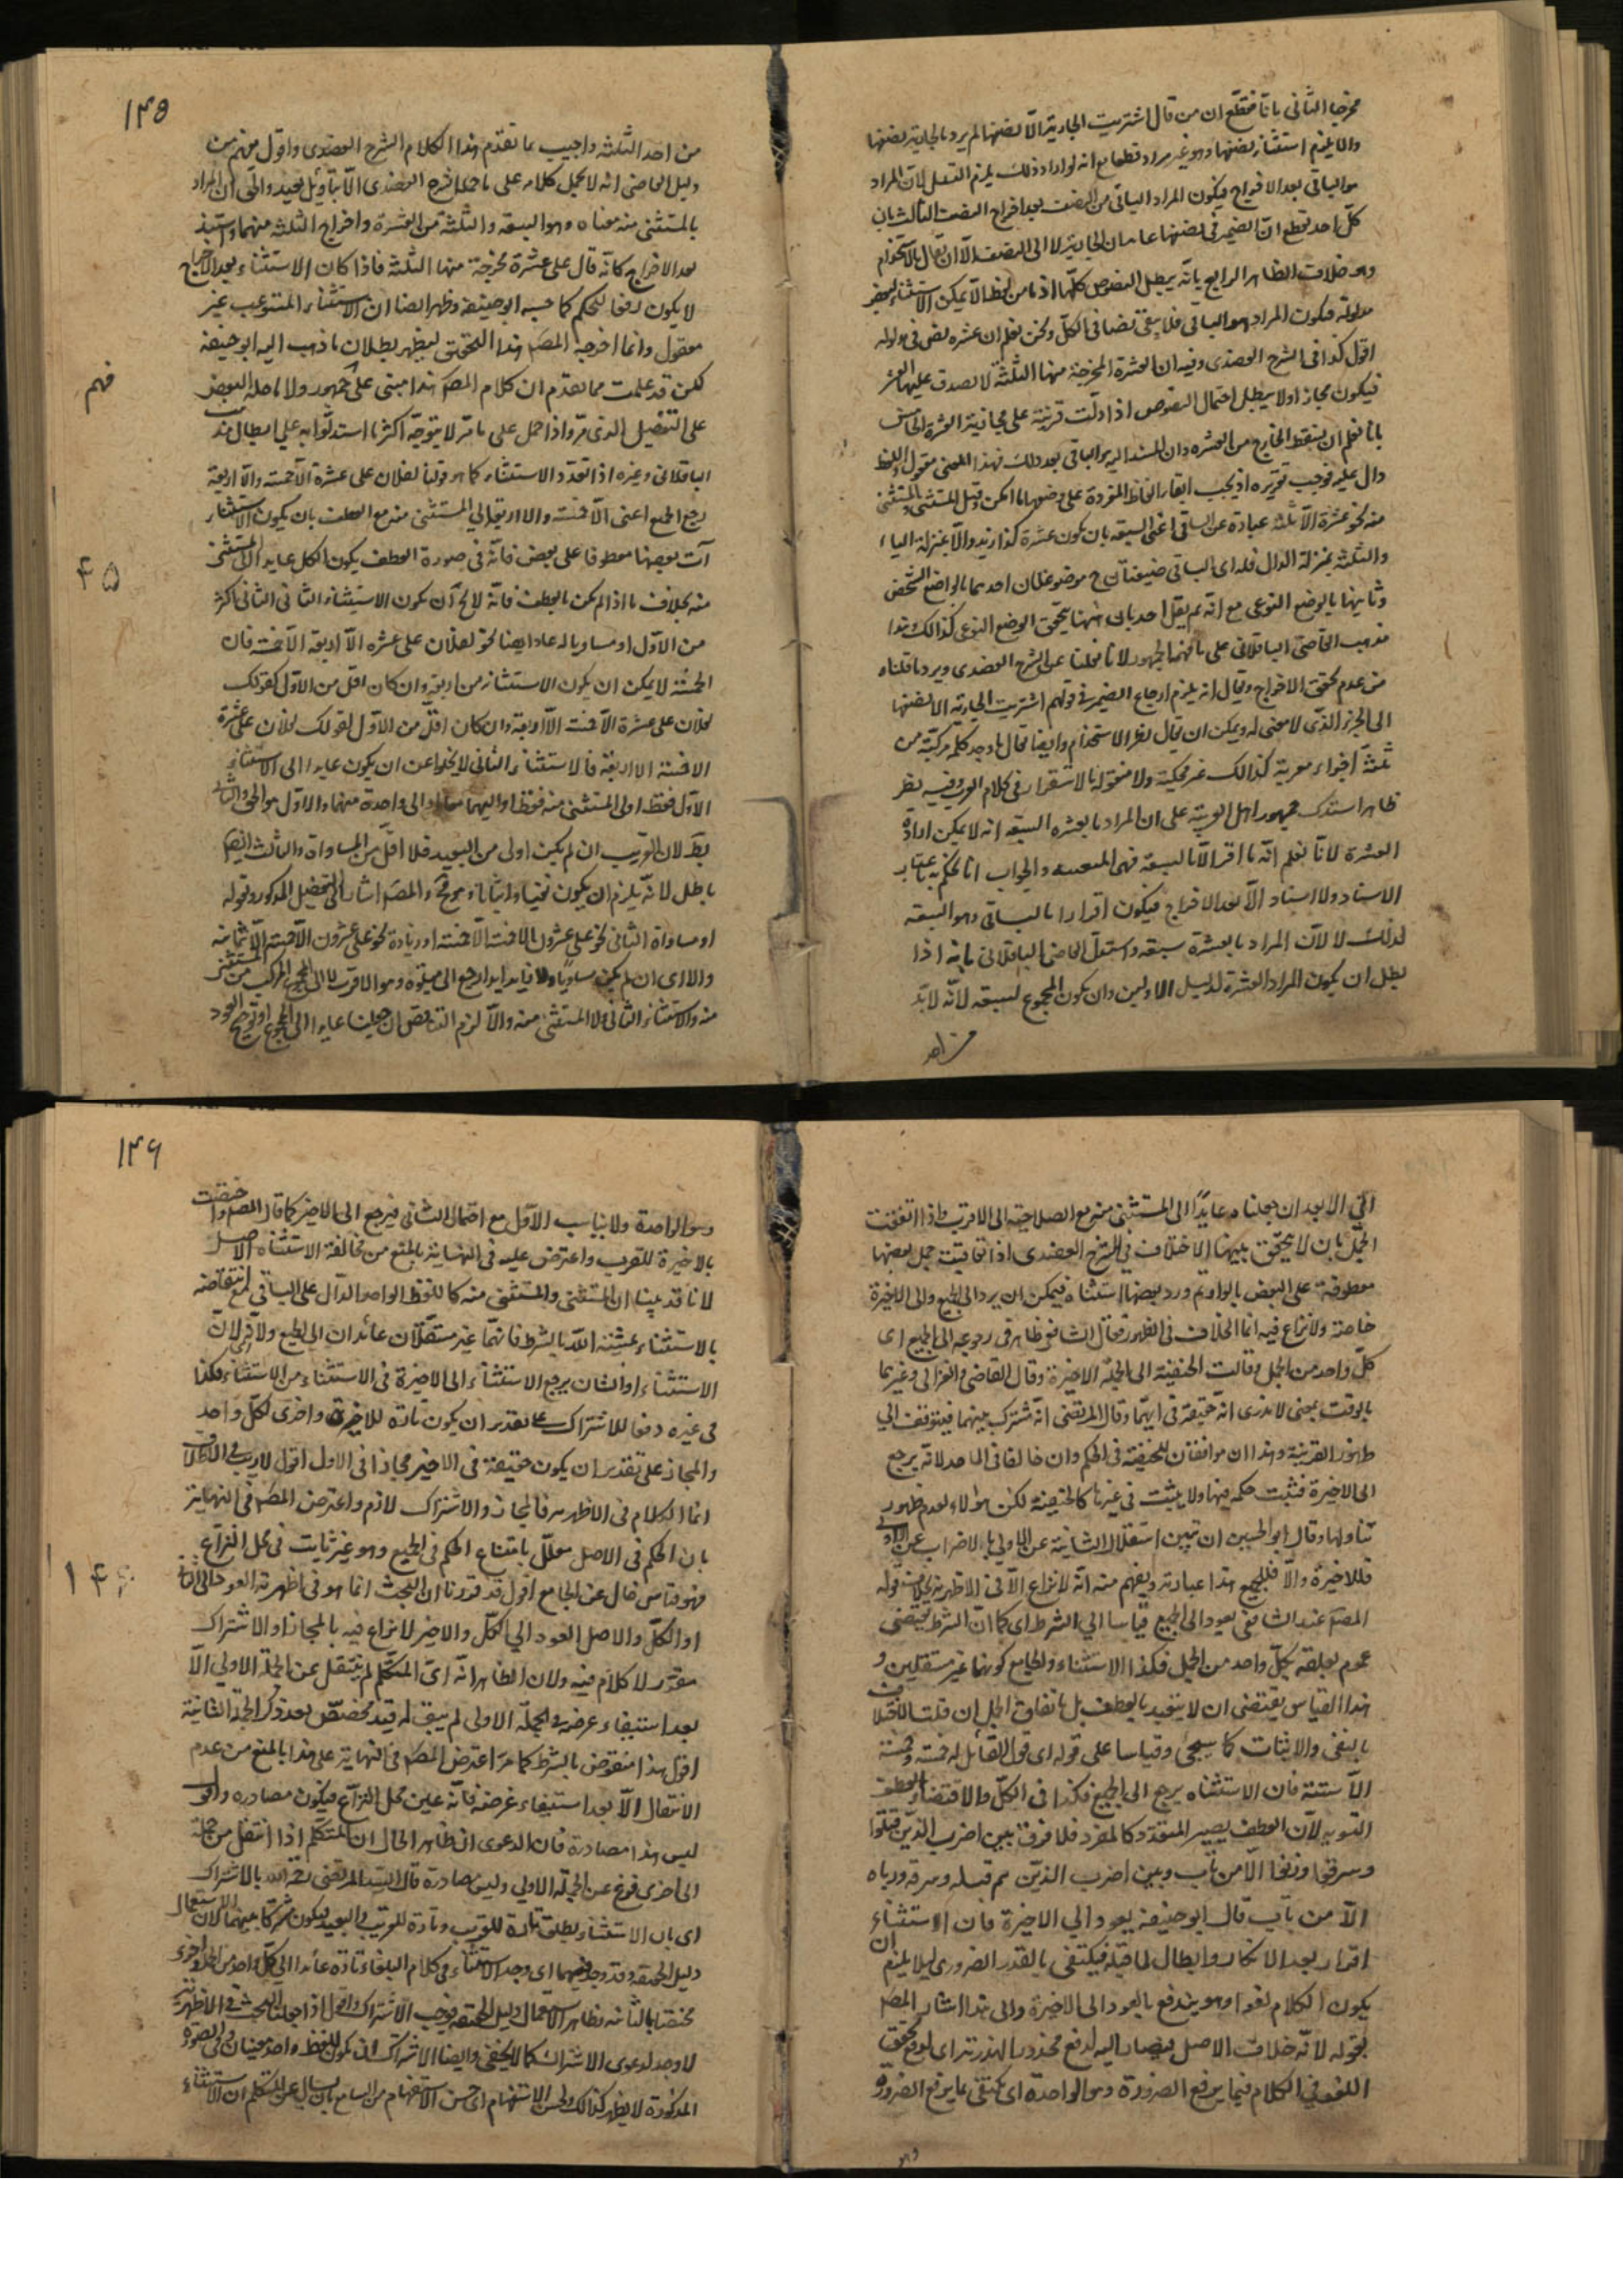 مخرجا الثانى بانا نقطع ان من قال اشتريت الجارية الا نصفها لم يرد بالجارية نصفها
والا يلزم استثناء نصفها وهو غير مراد قطعا مع انه لو اراد ذلك يلزم التسلسل لان المراد
هو الباقى بعد الاخراج فيكون المراد الباقى من النصف بعد اخراج النصف الثالث بان
كل احد يقطع ان الضمير فى نصفها عايد الى الجارية لا الى النصف الا ان يقال بالاستخدام
وهو خلاف الظاهر الرابع بانه يبطل النصوص كلها اذ ما من لفظ الا يمكن الاستثناء لبعض
مدلوله فيكون المراد هو الباقى فلا يبقى نصا فى الكل ونحن نعلم ان عشرة نص فى مدلوله
اقول كذا فى الشرح العضدى وفيه ان العشرة المخرجة منها الثلثة لا يصدق عليها العشر
فيكون مجازا ولا يبطل احتمال النصوص اذا دلت قرينة على مجازية العشرة الخامس
بانا نعلم ان يسقط الخارج من العشرة وان المسند اليه هو الباقى بعد ذلك فهذا المعنى معقول واللفظ
دال عليه فوجب تقريره اذ يجب ابقاء الفاظ المفردة على وضعها ما امكن وقيل المستثنى والمستثنى
منه نحو عشرة الا ثلثة عبارة عن الباقى اعنى السبعة بان يكون عشرة كذا زيد والا بمنزلة الياء
والثلثة بمنزلة الدال فله اى الباقى ح موضوعان احدهما بالوضع الشخصى
وثانيها بالوضع النوعى مع انه لم يقل احد بان ههنا يتحقق الوضع النوعى كذلك وهذا
مذهب القاضى الباقلانى على ما فهمه الجمهور لانا نقلنا عن الشرح العضدى ويرد ما قلناه
من عدم تحقق الاخراج ويقال انه يلزم ارجاع الضمير فى قولهم اشتريت الجارية الا نصفها
الى الجزء الذى لا معنى له ويمكن ان يقال نظر الاستخدام وايضا يقال ما وجد كلمة مركبة من
ثلثة اجزاء معربة كذلك غير محكية ولا منقولة بالاستقراء فى كلام العرب وفيه نظر
ظاهر استدل جمهور اهل العربية على ان المراد بالعشرة السبعة انه لا يمكن ارادة
العشرة لانا نعلم انه ما اقر الا بالسبعة فهى المتعينة والجواب انا نحكم به باعتبار
الاسناد ولا اسناد الا بعد الاخراج فيكون اقرارا بالباقى وهو السبعة
لذلك لا لان المراد بالعشرة سبعة واستدل القاضى الباقلانى بانه اذا
بطل ان يكون المراد العشرة لدليل الاولين وان يكون المجموع لسبعة لانه لابد
من احد
١٤٥
من احد الثلثة واجيب بما تقدم هذا الكلام الشرح العضدى واقول منهم من
دليل القاضى انه لا يحمل كلامه على ما حمل شرح العضدى الا بتأويل بعيد والحق ان المراد
بالمستثنى منه معناه وهو السبعة والثلثة من العشرة واخراج الثلثة منهما واسند
بعد الاخراج كانه قال على عشرة مخرجة منها الثلثة فاذا كان الاستثناء بعد الاخراج
لا يكون رفعا للحكم كما حسبه ابوحنيفة وظهر ايضا ان الاستثناء المستوعب غير
معقول وانما اخرجه المصـ هذا التحقيق ليظهر بطلان ما ذهب اليه ابو حنيفة
فهم
لكن قد علمت مما تقدم ان كلام المصـ هذا مبنى على الجمهور ولا ما حمله البعض
على التفصيل الذى مر واذا حمل على ما مر لا يتوجه اكثر ما استدلوا به على ابطال مذهب
الباقلانى وغيره اذا تعدد الاستثناء كما هو قولنا لفلان على عشرة الا خمسة والا اربعة
رجع الجميع اعنى الا خمسة والا اربعة الى المستثنى منه مع العطف بان يكون الاستثناء
۴۵
آت بعضها معطوفا على بعض فانه فى صورة العطف يكون الكل عايد الى المستثنى
منه بخلاف ما اذا لم يكن بالعطف فانه لا يخ ان يكون الاستثناء الثانى الثانى اكثر
من الاول او مساويا له عاد ايضا نحو لفلان على عشرة الا اربعة الا خمسة فان
الخمسة لا يمكن ان يكون الاستثناء من اربعة وان كان اقل من الاول كقولك
لفلان على عشرة الا خمسة الا اربعة وان كان اقل من الاول كقولك لفلان على عشرة
الا خمسة الا اربعة فالاستثناء الثانى لا يخلو اعن ان يكون عايدا الى الاستثناء
الاول فقط او الى المستثنى منه فقط او اليهما معا او الى واحدة منهما والاول هو الحق والثانى
بط لان القريب ان لم يكن اولى من البعيد فلا اقل من المساواة والثالث ايضا
باطل لانه يلزم ان يكون نفيا واثباتا وهو مح والمصـ اشار الى التفصيل المذكور وقوله
او مساواة الثانى نحو على عشرون الا خمسة الا خمسة او زيادة نحو على عشرون الا خمسة الا ثمانية
والا اى ان لم يكن مساويا ولا زايدا رجع الى متلوه وهو الاقرب لا الى المجموع المركب من المستثنى
منه والاستثناء الثانى ولا المستثنى منه والا لزم التناقض ان جعلنا عايدا الى المجموع او ترجيح العود
الى الابعد ان جعلناه عايدا الى المستثنى منه مع الصلاحية الى الاقرب واذا اتفقت
الجمل بان لا يتحقق بينها الاختلاف فى الشرح العضدى اذا تعاقبت جمل بعضها
معطوفة على البعض بالواو ثم ورد بعضها استثناء فيمكن ان يرد الى الجميع والى الاخيرة
خاصة ولا نزاع فيه انما الخلاف فى الظهور فقال الشافعى ظاهر فى رجوعه الى الجميع اى
كل واحد من الجمل وقالت الحنفية الى الجملة الاخيرة وقال القاضى والغزالى وغيرهما
بالوقف بمعنى لا ندرى انه حقيقة فى ايهما وقال المرتضى انه مشترك بينهما فيتوقف الى
ظهور القرينة وهذا ان موافقان للحنفية فى الحكم وان خالفا فى الماخذ لانه يرجع
الى الاخيرة فثبت حكمه فيها ولا يثبت فى غيرها كالحنفية لكن هؤلاء لعدم ظهور
تناولها وقال ابو الحسين ان تبين استقلال الثانية عن الاولى بالاضراب عن الاولى
فللاخيرة والا فللجميع هذا عبارته ويفهم منه انه لا نزاع الا فى الاظهرية فلا منه قوله
المصـ عند الشافعى يعود الى الجميع قياسا الى الشرط اى كما ان الشرط يقتضى
عموم تعلقه بكل واحد من الجمل فكذا الاستثناء والجامع كونهما غير مستقلين و
هذا القياس يقتضى ان لا يتقيد بالعطف بل باتفاق الجمل ان قلت الاختلاف
بالنفى والاثبات كما سيجئ وقياسا على قوله اى قول القائل له خمسة وخمسة
الا ستة فان الاستثناء يرجع الى الجميع فكذا فى الكل والاقتضاء العطف
التسوية لان العطف يصير المتعدد كالمفرد فلا فرق بين اضرب الذين قتلوا
وسرقوا وزنوا الا من تاب وبين اضرب الذين هم قتله وسرقة وزناة
الا من تاب قال ابو حنيفة يعود الى الاخيرة فان الاستثناء
اقرار بعد الانكار وابطال لما قبله فيكتفى بالقدر الضرورى ليلا يلزم ان
يكون الكلام لغوا وهو يندفع بالعود الى الاخيرة والى هذا اشار المصـ
بقوله لانه خلاف الاصل فيصار اليه لدفع محذور الهذرية اى لوقع تحقق
اللغو فى الكلام فيما يرفع الضرورة وهو الواحدة اى يكتفى بما يرفع الضرورة
وهو
١٤۶
وهو الواحدة ولا يناسب الاول مع احتمال الثانى فيرجع الى الاخير كما قال المصـ واختصت
بالاخيرة للقرب واعترض عليه فى النهاية بالمنع من مخالفة الاستثناء الاصل
لانا قد بينا ان المستثنى والمستثنى منه كاللفظ الواحد الدال على الباقى ثم تنقضه
بالاستثناء بمشية الله بالشرط فانهما غير مستقلان عائدان الى الجميع ولاخر لان
الاستثناء او الشان يرجع الاستثناء الى الاخيرة فى الاستثناء من الاستثناء فكذا
فى غيره دفعا للاشتراك على تقدير ان يكون تارة للاخيرة واخرى لكل واحد
والمجاز على تقدير ان يكون حقيقة فى الاخير مجازا فى الاول اقول لا ريب فى الاطلاق
انما الكلام فى الاظهرية فالمجاز والاشتراك لازم واعترض المصـ فى النهاية
بان الحكم فى الاصل معلل بامتناع الحكم فى الجميع وهو غير ثابت فى محل النزاع
۱۴۶
فهو قياس خال عن الجامع اقول قد قررنا ان البحث انما هو فى اظهرية العود الى
او الكل والاصل العود الى الكل والاخير لا نزاع فيه بالمجاز او الاشتراك
مقرر لا كلام فيه ولان الظاهر انه اى المتكلم لم ينتقل عن الجملة الاولى الا
بعد استيفاء غرضه فى الجملة الاولى لم يبق له قيد مخصص بعد ذكر الجملة الثانية
اقول هذا منقوض بالشرط كما مر اعترض المصـ فى النهاية على هذا بالمنع من عدم
الانتقال الا بعد استيفاء غرضه فانه عين محل النزاع فيكون مصادرة واقول
ليس هذا مصادرة فان الدعوى ان ظاهر الحال ان المتكلم اذا انتقل من جملة
الى اخرى فرغ عن الجملة الاولى وليس مصادرة قال السيد المرتضى رحمه الله بالاشتراك
اى بان الاستثناء يطلق تارة للقريب وتارة للقريب والبعيد فيكون مشتركا بينهما لان الاستعمال
دليل الحقيقة وقد وجد فيهما اى وجد الاستثناء فى كلام البلغاء تارة عائدا الى كل واحد من الجمل واخرى
مختصا بالثانية وظاهر الاستعمال دليل الحقيقة فوجب الاشتراك واقول اذا جعلنا البحث فى الاظهرية
لا وجه لدعوى الاشتراك كما لا يخفى وايضا الاشتراك ان يكون للفظ واحد معنيان وفى الصورة
المذكورة لا يظهر كذلك ولحسن الاستفهام اى حسن الاستفهام من السامع بان يسال عن المتكلم ان الاستثناء